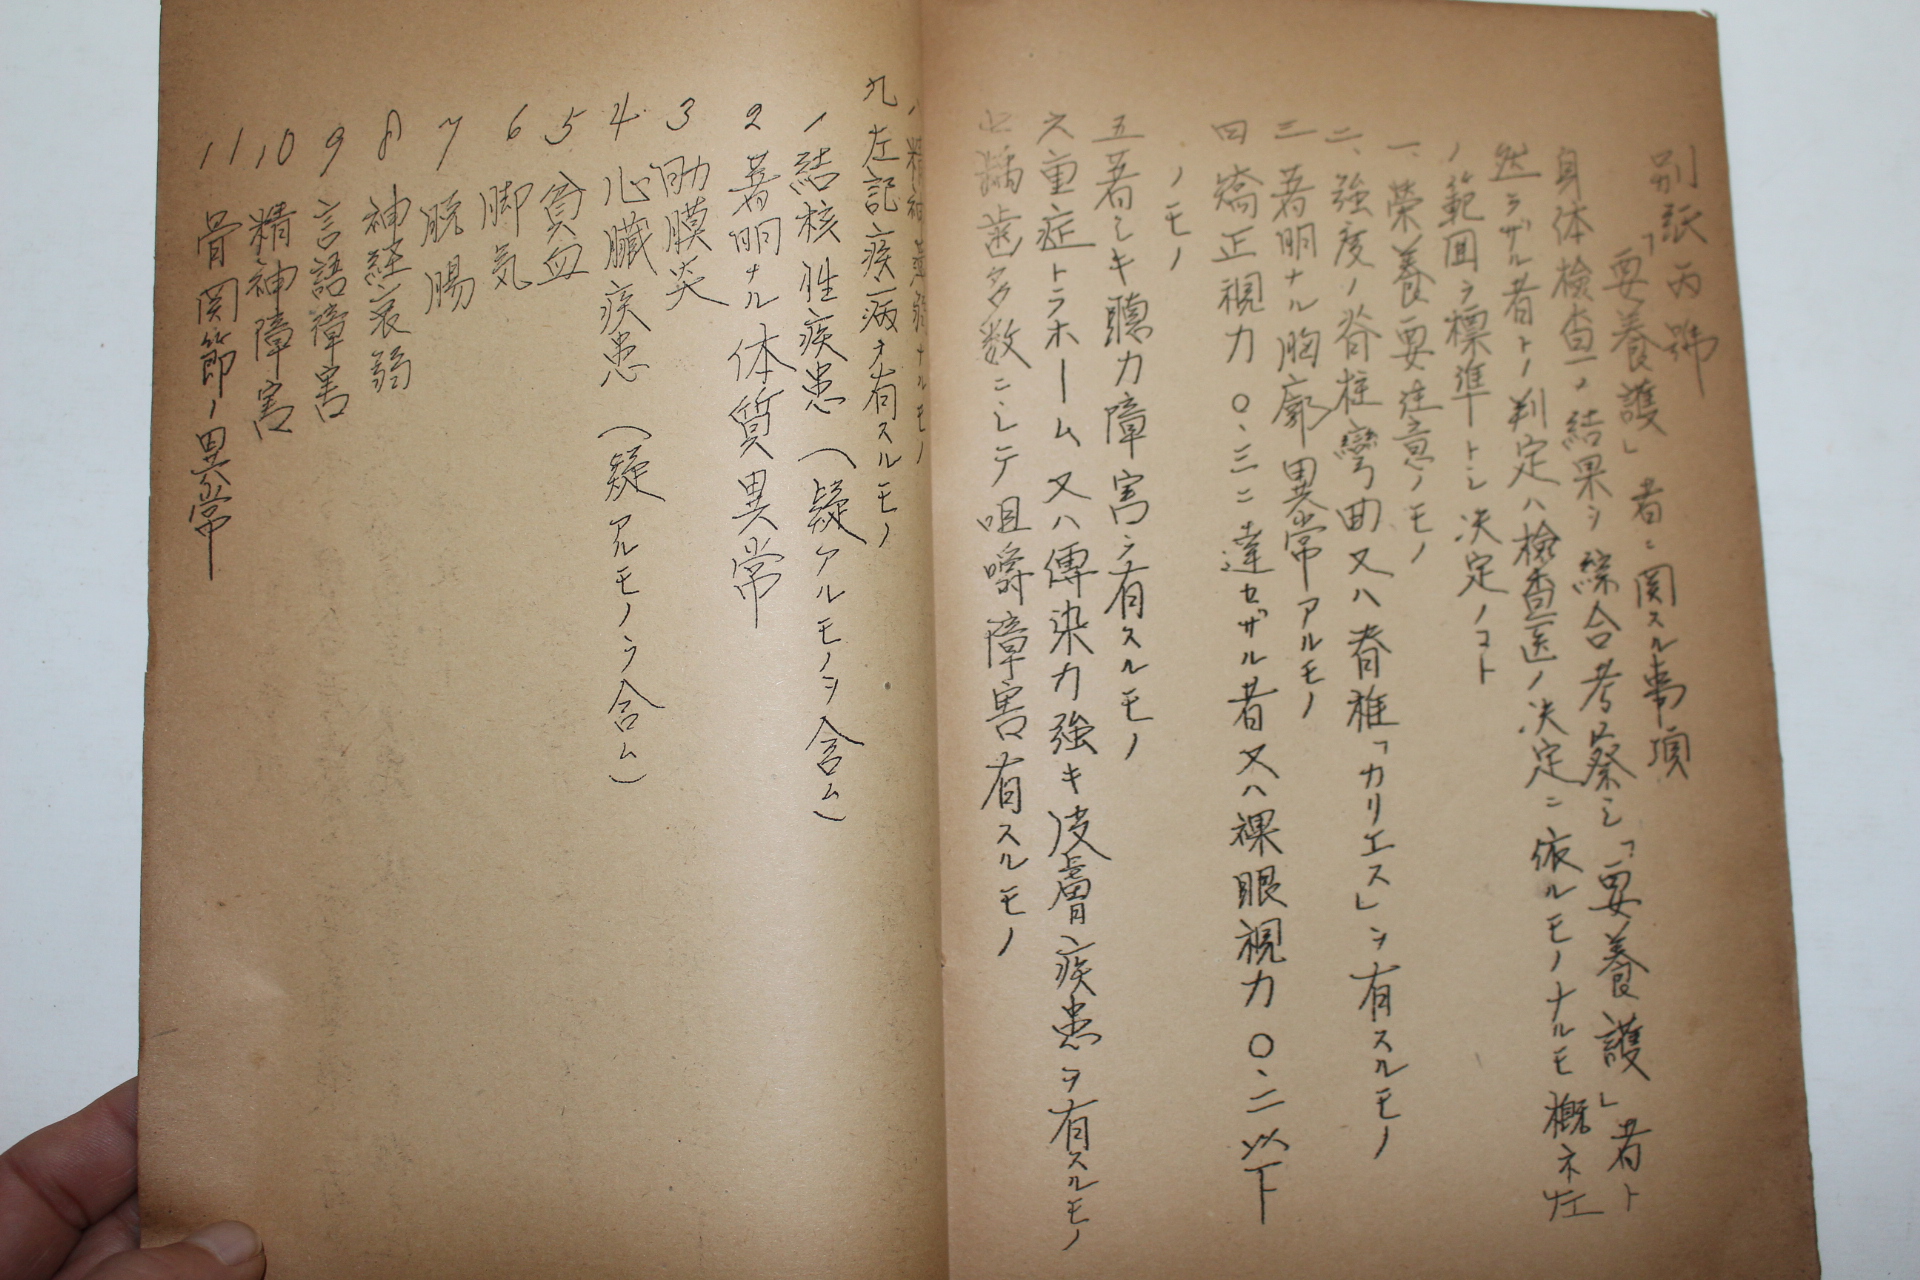 別紙丙號
「要養護」者ニ関スル事項
身体檢査ノ結果ヲ綜合考察シ「要養護」者ト
然ラザル者トノ判定ハ檢査医ノ決定ニ依ルモノナルモ概ネ左
ノ範囲ヲ標準トシ决定ノコト
一、榮養要注意ノモノ
二、強度ノ脊柱彎曲又ハ脊椎「カリエス」ヲ有スルモノ
三 著明ナル胸廓異常アルモノ
四 矯正視力〇、三ニ達セザル者又ハ裸眼視力〇、二以下
ノモノ
五 著シキ聽力障害ヲ有スルモノ
六 重症トラホーム又ハ傳染力強キ皮膚疾患ヲ有スルモノ
七 齲歯多数ニシテ咀嚼障害有スルモノ
八 精神薄弱ナルモノ
九 左記疾病ヲ有スルモノ
1 結核性疾患(疑アルモノヲ含ム)
2 著明ナル体質異常
3 肋膜炎
4 心臓疾患(疑アルモノヲ含ム)
5 貧血
6 脚気
7 脱腸
8 神経衰弱
9 言語障害
10 精神障害
11 骨関節ノ異常